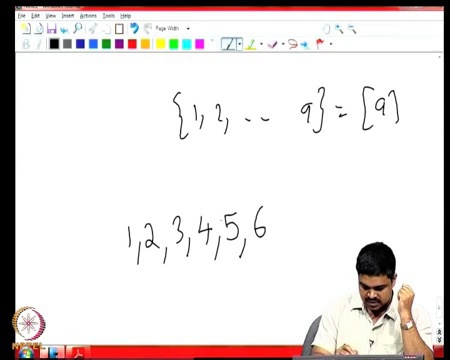 File Edit View Insert Actions Tools Help
Page Width
{1, 2, .. 9} = [9]
1, 2, 3, 4, 5, 6